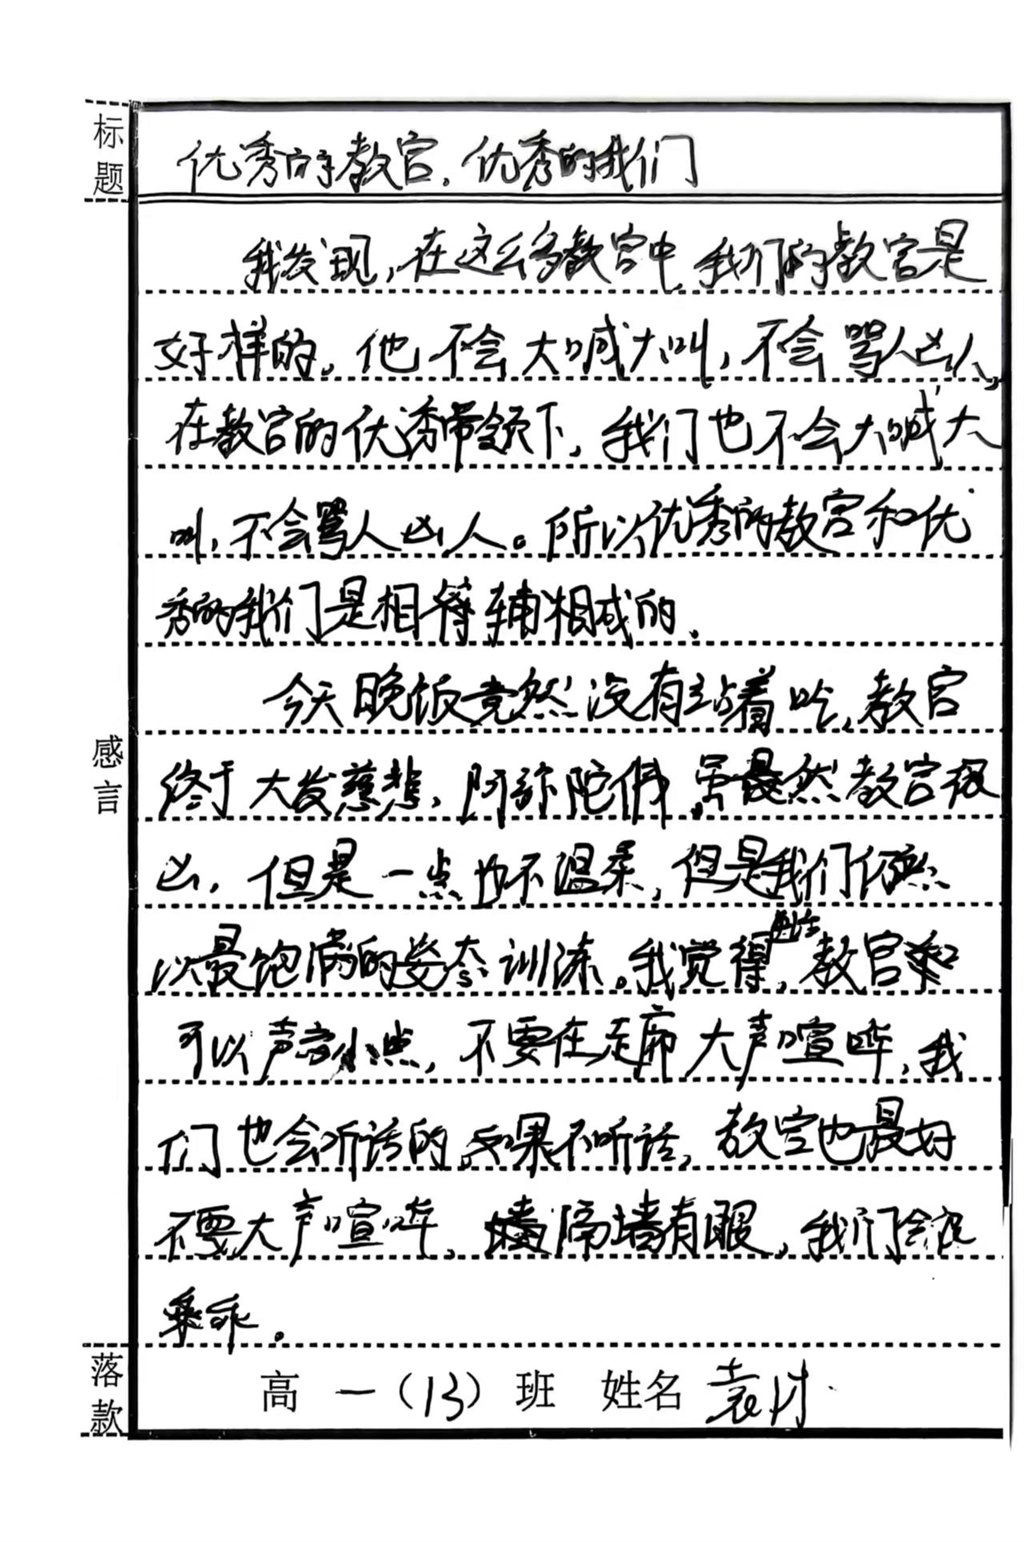 标题
优秀的教官，优秀的我们
我发现，在这么多教官中，我们的教官是
好样的。他不会大喊大叫，不会骂人凶人，
在教官的优秀带领下，我们也不会大喊大
叫，不会骂人凶人。所以优秀的教官和优
秀的我们是相等辅相成的。
今天晚饭竟然没有站着吃，教官
终于大发慈悲，阿弥陀佛，虽然教官很
凶，但是一点也不温柔，但是我们仍然
以最饱满的姿态训练。我觉得，教官
可以声音小点，不要在走廊大声喧哗，我
们也会听话的，如果不听话，教官也最好
不要大声喧哗，隔墙有眼，我们会很
乖。
感言
落款
高一（13）班 姓名 袁